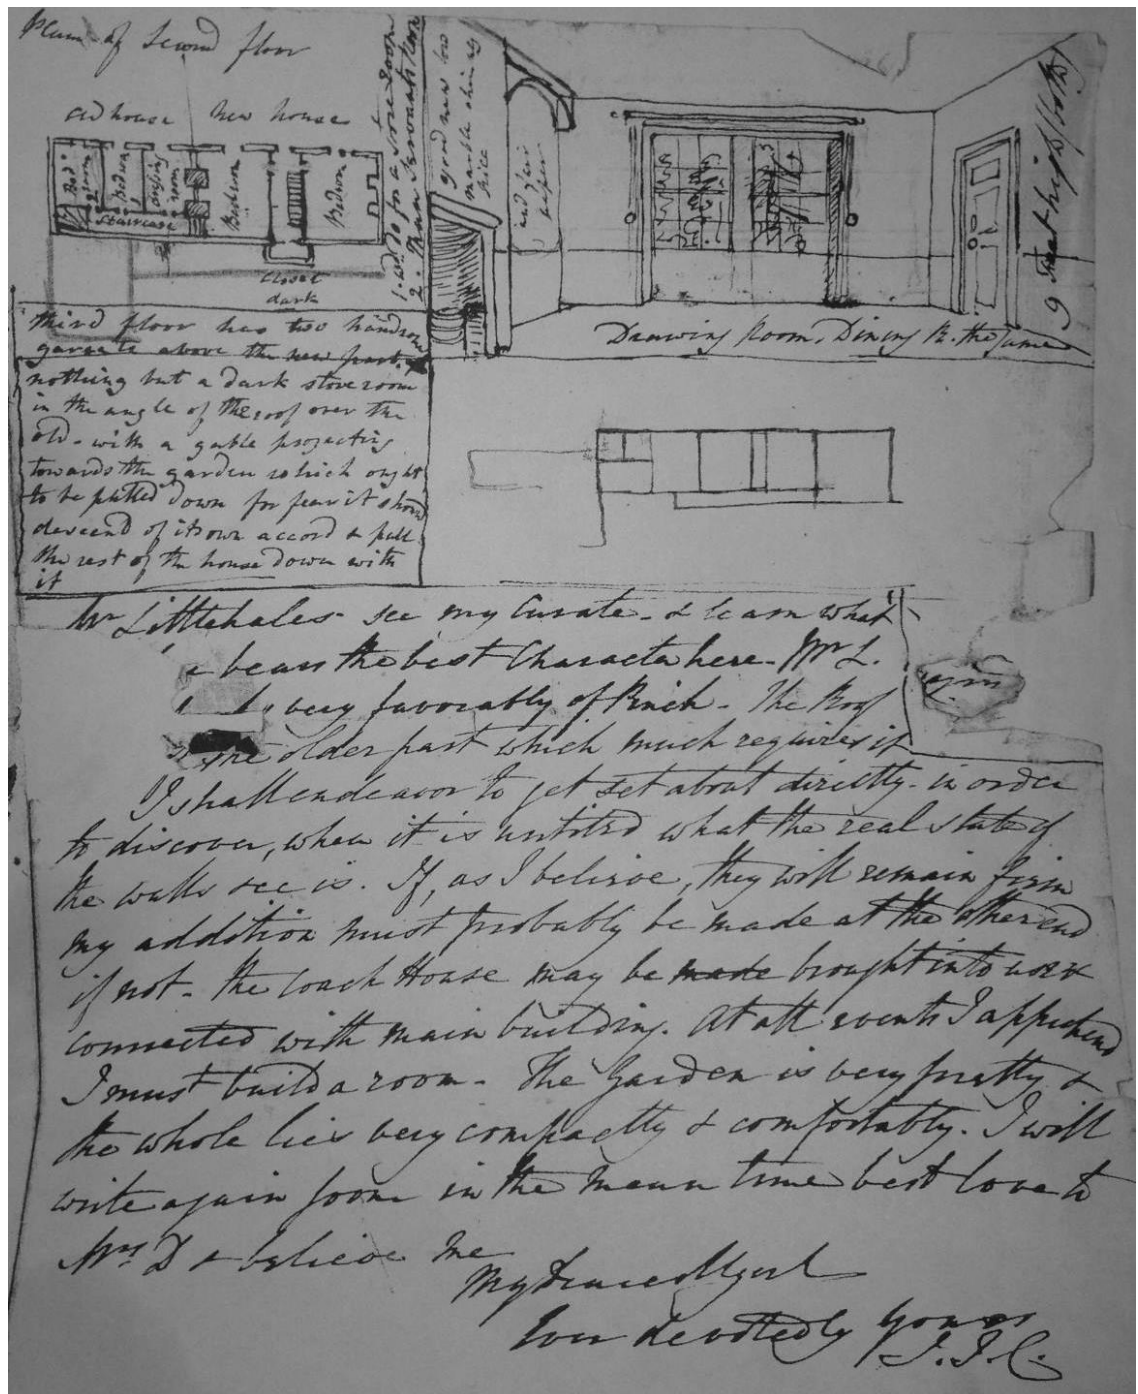 Plan of Second floor
old house new house
Bed room
Bedroom
dressing room
Bedroom
Bedroom
Staircase
Closet
dark
1. wd. do for a Store room
2. Servants Room
good new low
marble chimney
piece
and fair
paper
9 feet high (both)
Drawing Room. Dining R. the same
third floor has two handsome
garrets above the new part.
nothing but a dark storeroom
in the angle of the roof over the
old - with a gable projecting
towards the garden which ought
to be pulled down for fear it should
descend of its own accord & pull
the rest of the house down with
it
Mr Littlehales see my Curate - & learn what
bears the best Character here - Mr L.
very favorably of Pinch - The Roof
the older part which much requires it
I shall endeavor to get set about directly - in order
to discover, when it is untiled what the real state of
the walls is. If, as I believe, they will remain firm
my addition must probably be made at the other end
if not - the Coach House may be made brought into work
connected with main building. At all events I apprehend
I must build a room - The Garden is very pretty &
the whole lies very compactly & comfortably. I will
write again soon in the mean time best love to
Mrs D & believe me
My
Ever devotedly yours
J. J. C.